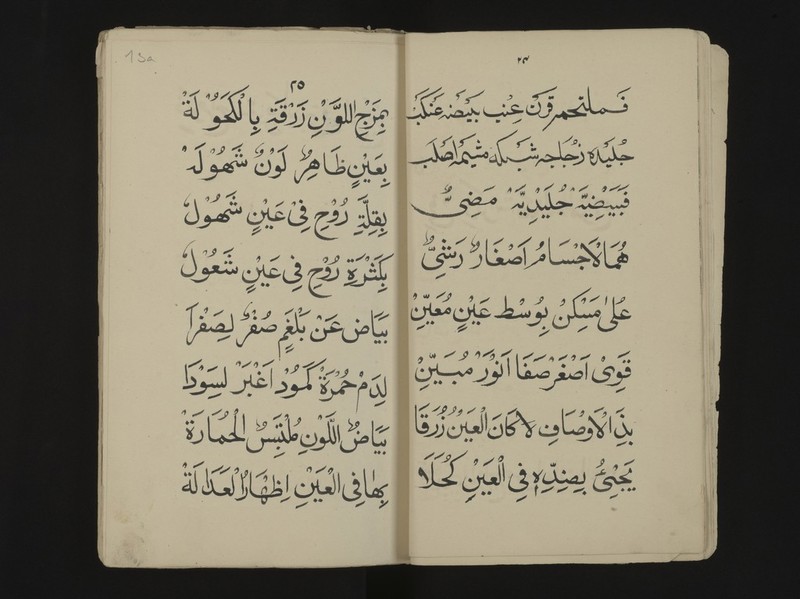 ٢٤
فملتحمر قرن عنب بيضه عنكب
جليده زجاجه شبكه مشيمه اصلب
فبيضية جليدية مضىء
هما الاجسام اصغار رشى
على مسكن بوسط عين معين
قوى اصغر صفا انور مبين
بذا الاوصاف لا كان العين زرقا
يجئ بضده فى العين كحلا
13a
٢٥
بمزج اللون زرقة بالكحولة
بعين ظاهر لون شهولة
بقلة روح فى عين شهول
بكثرة روح فى عين شعول
بياض عن بلغم صفر لصفرا
لدم حمرة كمود اغبر لسودا
بياض اللون ملتبس الحمارة
بها فى العين اظهار العدالة